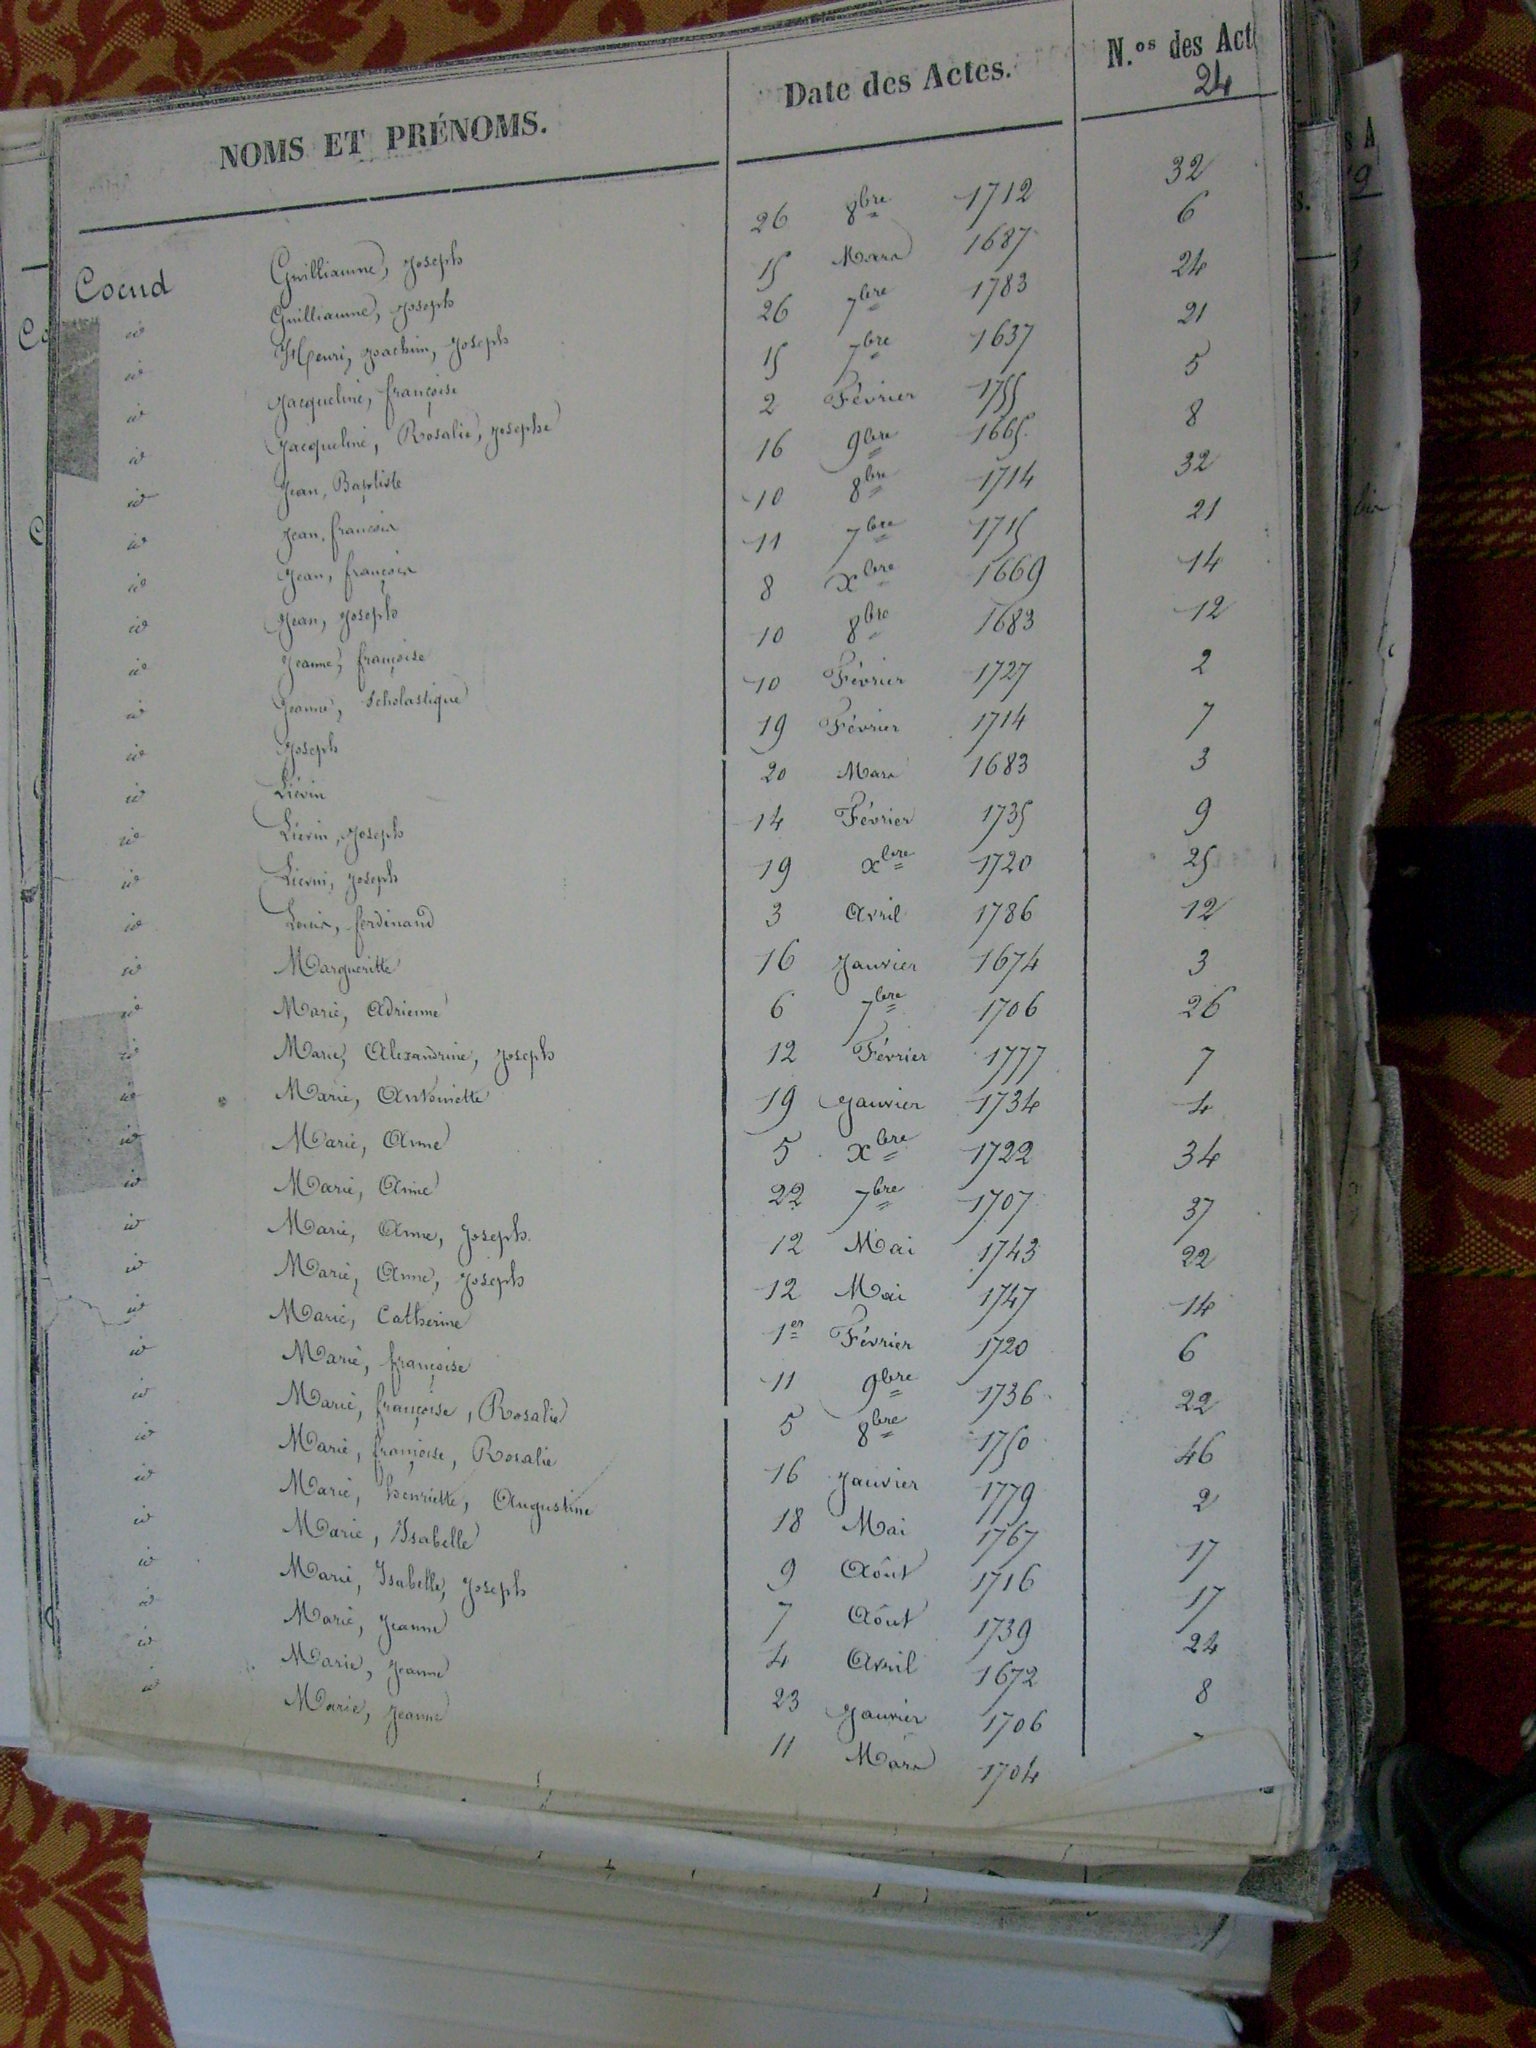 NOMS ET PRÉNOMS. Date des Actes. N.os des Act
24
Coeud Guilliaume, Joseph 26 8bre 1712 32
id Guilliaume, Joseph 15 Mars 1687 6
id Henri, Joachim, Joseph 26 7bre 1783 24
id Jacqueline, françoise 15 7bre 1637 21
id Jacqueline, Rosalie, Josephe 2 Février 1755 5
id Jean, Baptiste 16 9bre 1665. 8
id Jean, francois 10 8bre 1714 32
id Jean, françois 11 7bre 1715 21
id Jean, Joseph 8 xbre 1669 14
id Jeanne, françoise 10 8bre 1683 12
id Jeanne, Scholastique 10 Février 1727 2
id Joseph 19 Février 1714 7
id Liévin 20 Mars 1683 3
id Liévin, Joseph 14 Février 1735 9
id Liévin, Joseph 19 xbre 1720 25
id Louis, ferdinand 3 Avril 1786 12
id Margueritte 16 Janvier 1674 3
id Marie, Adrienne 6 7bre 1706 26
id Marie, Alexandrine, Joseph 12 Février 1777 7
id Marie, Antoinette 19 Janvier 1734 4
id Marie, Anne 5 xbre 1722 34
id Marie, Anne 22 7bre 1707 37
id Marie, Anne, Joseph 12 Mai 1743 22
id Marie, Anne, Joseph 12 Mai 1747 14
id Marie, Catherine 1er Février 1720 6
id Marie, françoise 11 9bre 1736 22
id Marie, françoise, Rosalie 5 8bre 1750 46
id Marie, françoise, Rosalie 16 Janvier 1779 2
id Marie, henriette, Augustine 18 Mai 1767 17
id Marie, Isabelle 9 Août 1716 17
id Marie, Isabelle, Joseph 7 Août 1739 24
id Marie, Jeanne 4 Avril 1672 8
id Marie, Jeanne 23 Janvier 1706
id Marie, Jeanne 11 Mars 1704